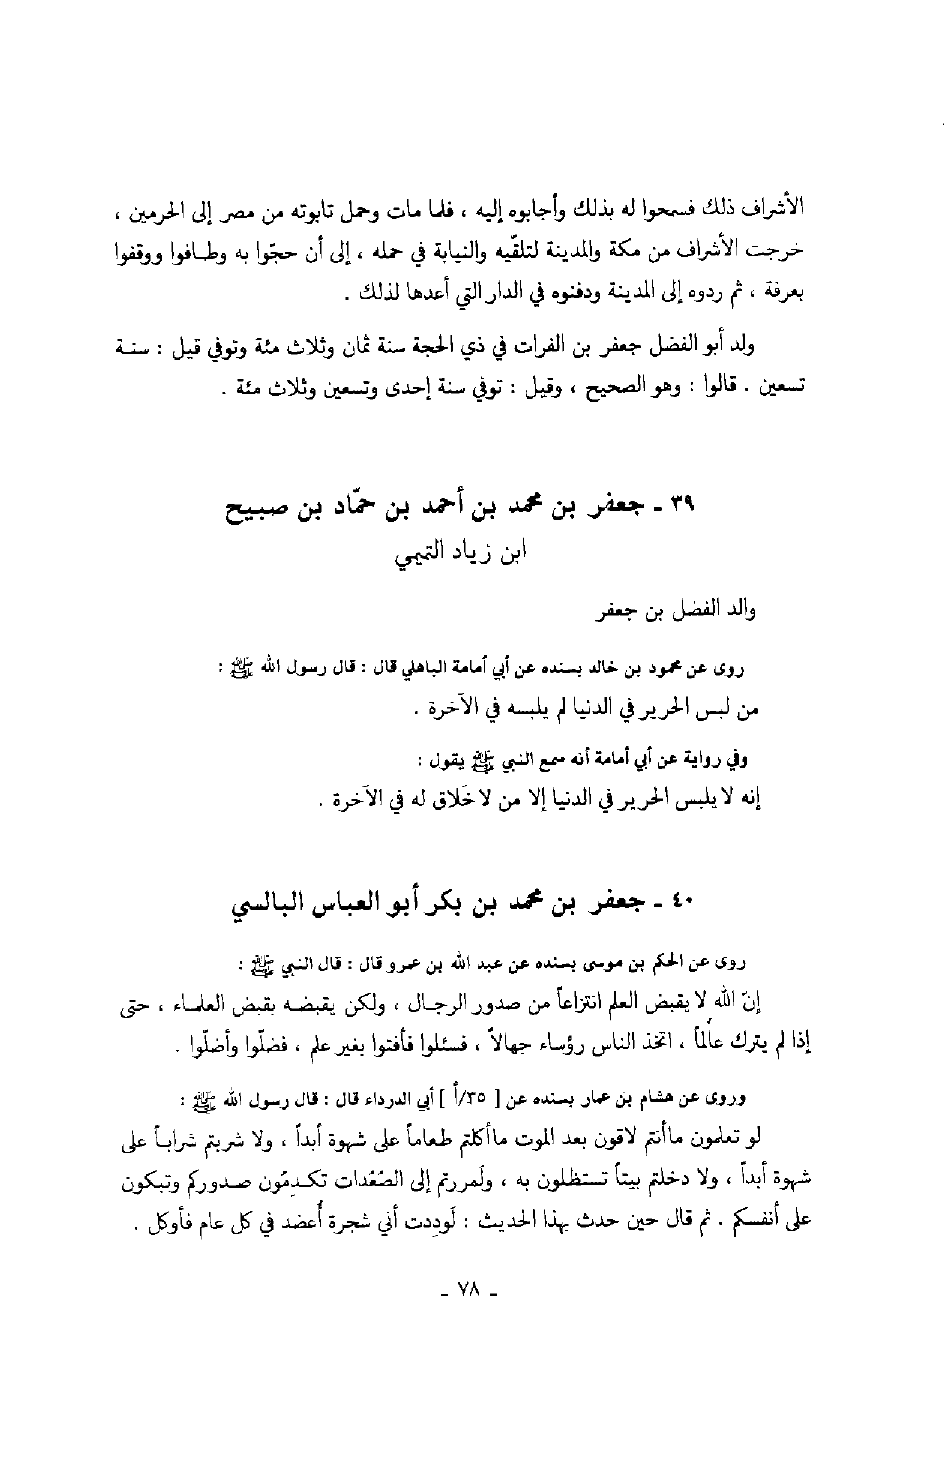 الأشراف ذلك فسمحوا له بذلك وأجابوه إليه ، فلما مات وحمل تابوته من مصر إلى الحرمين ،
خرجت الأشراف من مكة والمدينة لتلقّيه والنيابة في حمله ، إلى أن حجّوا به وطافوا ووقفوا
بعرفة ، ثم ردوه إلى المدينة ودفنوه في الدار التي أعدها لذلك .
ولد أبو الفضل جعفر بن الفرات في ذي الحجة سنة ثمان وثلاث مئة وتوفي قيل : سنة
تسعين . قالوا : وهو الصحيح ، وقيل : توفي سنة إحدى وتسعين وثلاث مئة .
٣٩ - جعفر بن محمد بن أحمد بن حمّاد بن صبيح
ابن زياد التميمي
والد الفضل بن جعفر
روى عن محمود بن خالد بسنده عن أبي أمامة الباهلي قال : قال رسول الله ﷺ :
من لبس الحرير في الدنيا لم يلبسه في الآخرة .
وفي رواية عن أبي أمامة أنه سمع النبي ﷺ يقول :
إنه لا يلبس الحرير في الدنيا إلا من لا خَلاق له في الآخرة .
٤٠ - جعفر بن محمد بن بكر أبو العباس البالسي
روى عن الحكم بن موسى بسنده عن عبد الله بن عمرو قال : قال النبي ﷺ :
إنّ الله لا يقبض العلم انتزاعاً من صدور الرجال ، ولكن يقبضه بقبض العلماء ، حتى
إذا لم يترك عالماً ، اتخذ الناس رؤساء جهالاً ، فسئلوا فأفتوا بغير علم ، فضلّوا وأضلّوا .
وروى عن هشام بن عمار بسنده عن [ ٣٥/أ ] أبي الدرداء قال : قال رسول الله ﷺ :
لو تعلمون ماأنتم لاقون بعد الموت ماأكلتم طعاماً على شهوة أبداً ، ولا شربتم شراباً على
شهوة أبداً ، ولا دخلتم بيتاً تستظلون به ، ولَمررتم إلى الصُّعُدات تكدِمُون صدوركم وتبكون
على أنفسكم . ثم قال حين حدث بهذا الحديث : لَوددت أني شجرة أُعضد في كل عام فأوكل .
- ٧٨ -